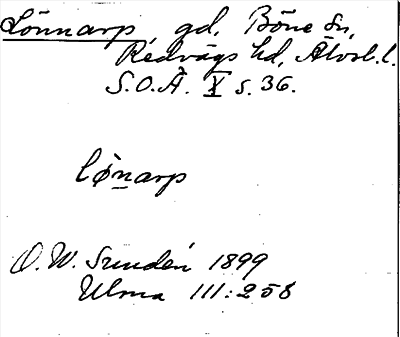 Lönnarp, gd, Böne sn,
Redvägs hd, Älvsb. l.
S.O.Ä. X s. 36.
lø̀n̲arp
O. W. Sundén 1899
Ulma III:258